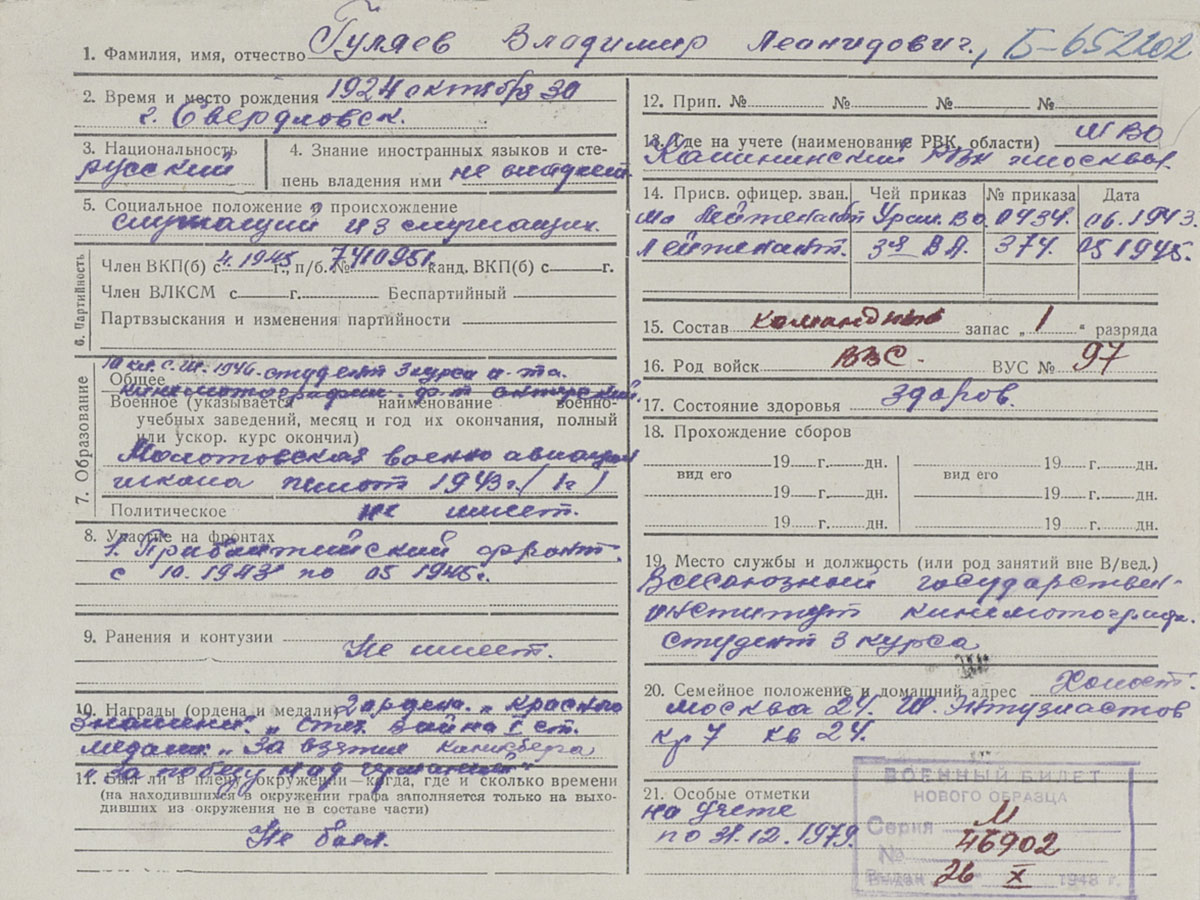 1. Фамилия, имя, отчество Гуляев Владимир Леонидович, Б-652202
2. Время и место рождения 1924 октября 30
г. Свердловск.
3. Национальность
русский
4. Знание иностранных языков и сте-
пень владения ими не владеет.
5. Социальное положение и происхождение
служащий из служащих.
6. Партийность
Член ВКП(б) с 4.1945 г., п/б. № 7410951. канд. ВКП(б) с г.
Член ВЛКСМ с г. Беспартийный
Партвзыскания и изменения партийности
7. Образование
10 кл. с. ш. 1946. студент 3 курса и-та.
Общее
кинематографии. ф-т актерский.
Военное (указывается наименование военно-
учебных заведений, месяц и год их окончания, полный
или ускор. курс окончил)
Молотовская военно авиацион
школа пилот 1943 г. (1 г)
Политическое не имеет.
8. Участие на фронтах
1. Прибалтийский фронт.
с 10.1943 по 05 1945г.
9. Ранения и контузии
Не имеет.
10. Награды (ордена и медали) 2 ордена. „Красного
знамени". „Отеч. война I ст.
медали: „За взятия Кенисберга
„За победу над германией"
11. Был ли в плену, окружении—когда, где и сколько времени
(на находившихся в окружении графа заполняется только на выхо-
дивших из окружения не в составе части)
Не был.
12. Прип. № № № №
13. Где на учете (наименование РВК, области) МВО
Калининский РВК г. Москвы.
14. Присв. офицер. зван. Чей приказ № приказа Дата
Мл Лейтенант Урал. ВО. 0434. 06.1943.
Лейтенант. 3-я ВА. 374. 05 1945.
15. Состав командный запас „ 1 " разряда
16. Род войск ВВС. ВУС № 97
17. Состояние здоровья здоров.
18. Прохождение сборов
19 г. дн. 19 г. дн.
вид его вид его
19 г. дн. 19 г. дн.
19 г. дн. 19 г. дн.
19. Место службы и должность (или род занятий вне В/вед.)
Всесоюзный государствен-
институт кинематографи.
студент 3 курса
20. Семейное положение и домашний адрес Холост.
Москва 24. Ш. Энтузиастов
кр 7 кв 24.
21. Особые отметки
на учете
по 31.12.1979.
ВОЕННЫЙ БИЛЕТ
НОВОГО ОБРАЗЦА
Серия М
№ 46902
Выдан 26 X 1948 г.